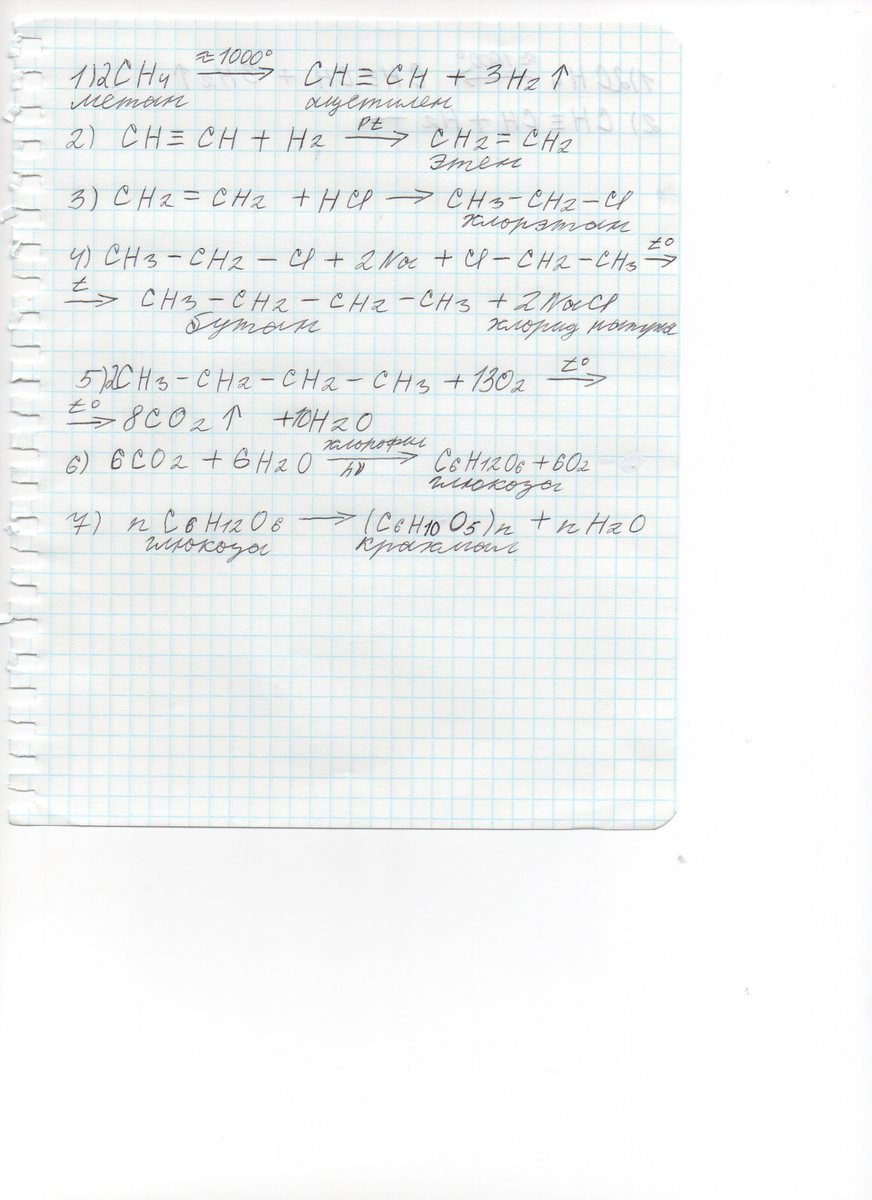 1) 2CH4 ≈1000° → CH≡CH + 3H2↑
метан ацетилен
2) CH≡CH + H2 Pt → CH2=CH2
этен
3) CH2=CH2 + HCl → CH3-CH2-Cl
хлорэтан
4) CH3-CH2-Cl + 2Na + Cl-CH2-CH3 t° →
t → CH3-CH2-CH2-CH3 + 2NaCl
бутан хлорид натрия
5) 2CH3-CH2-CH2-CH3 + 13O2 t° →
t° → 8CO2↑ + 10H2O
6) 6CO2 + 6H2O хлорофил hν → C6H12O6 + 6O2
глюкоза
7) n C6H12O6 → (C6H10O5)n + n H2O
глюкоза крахмал